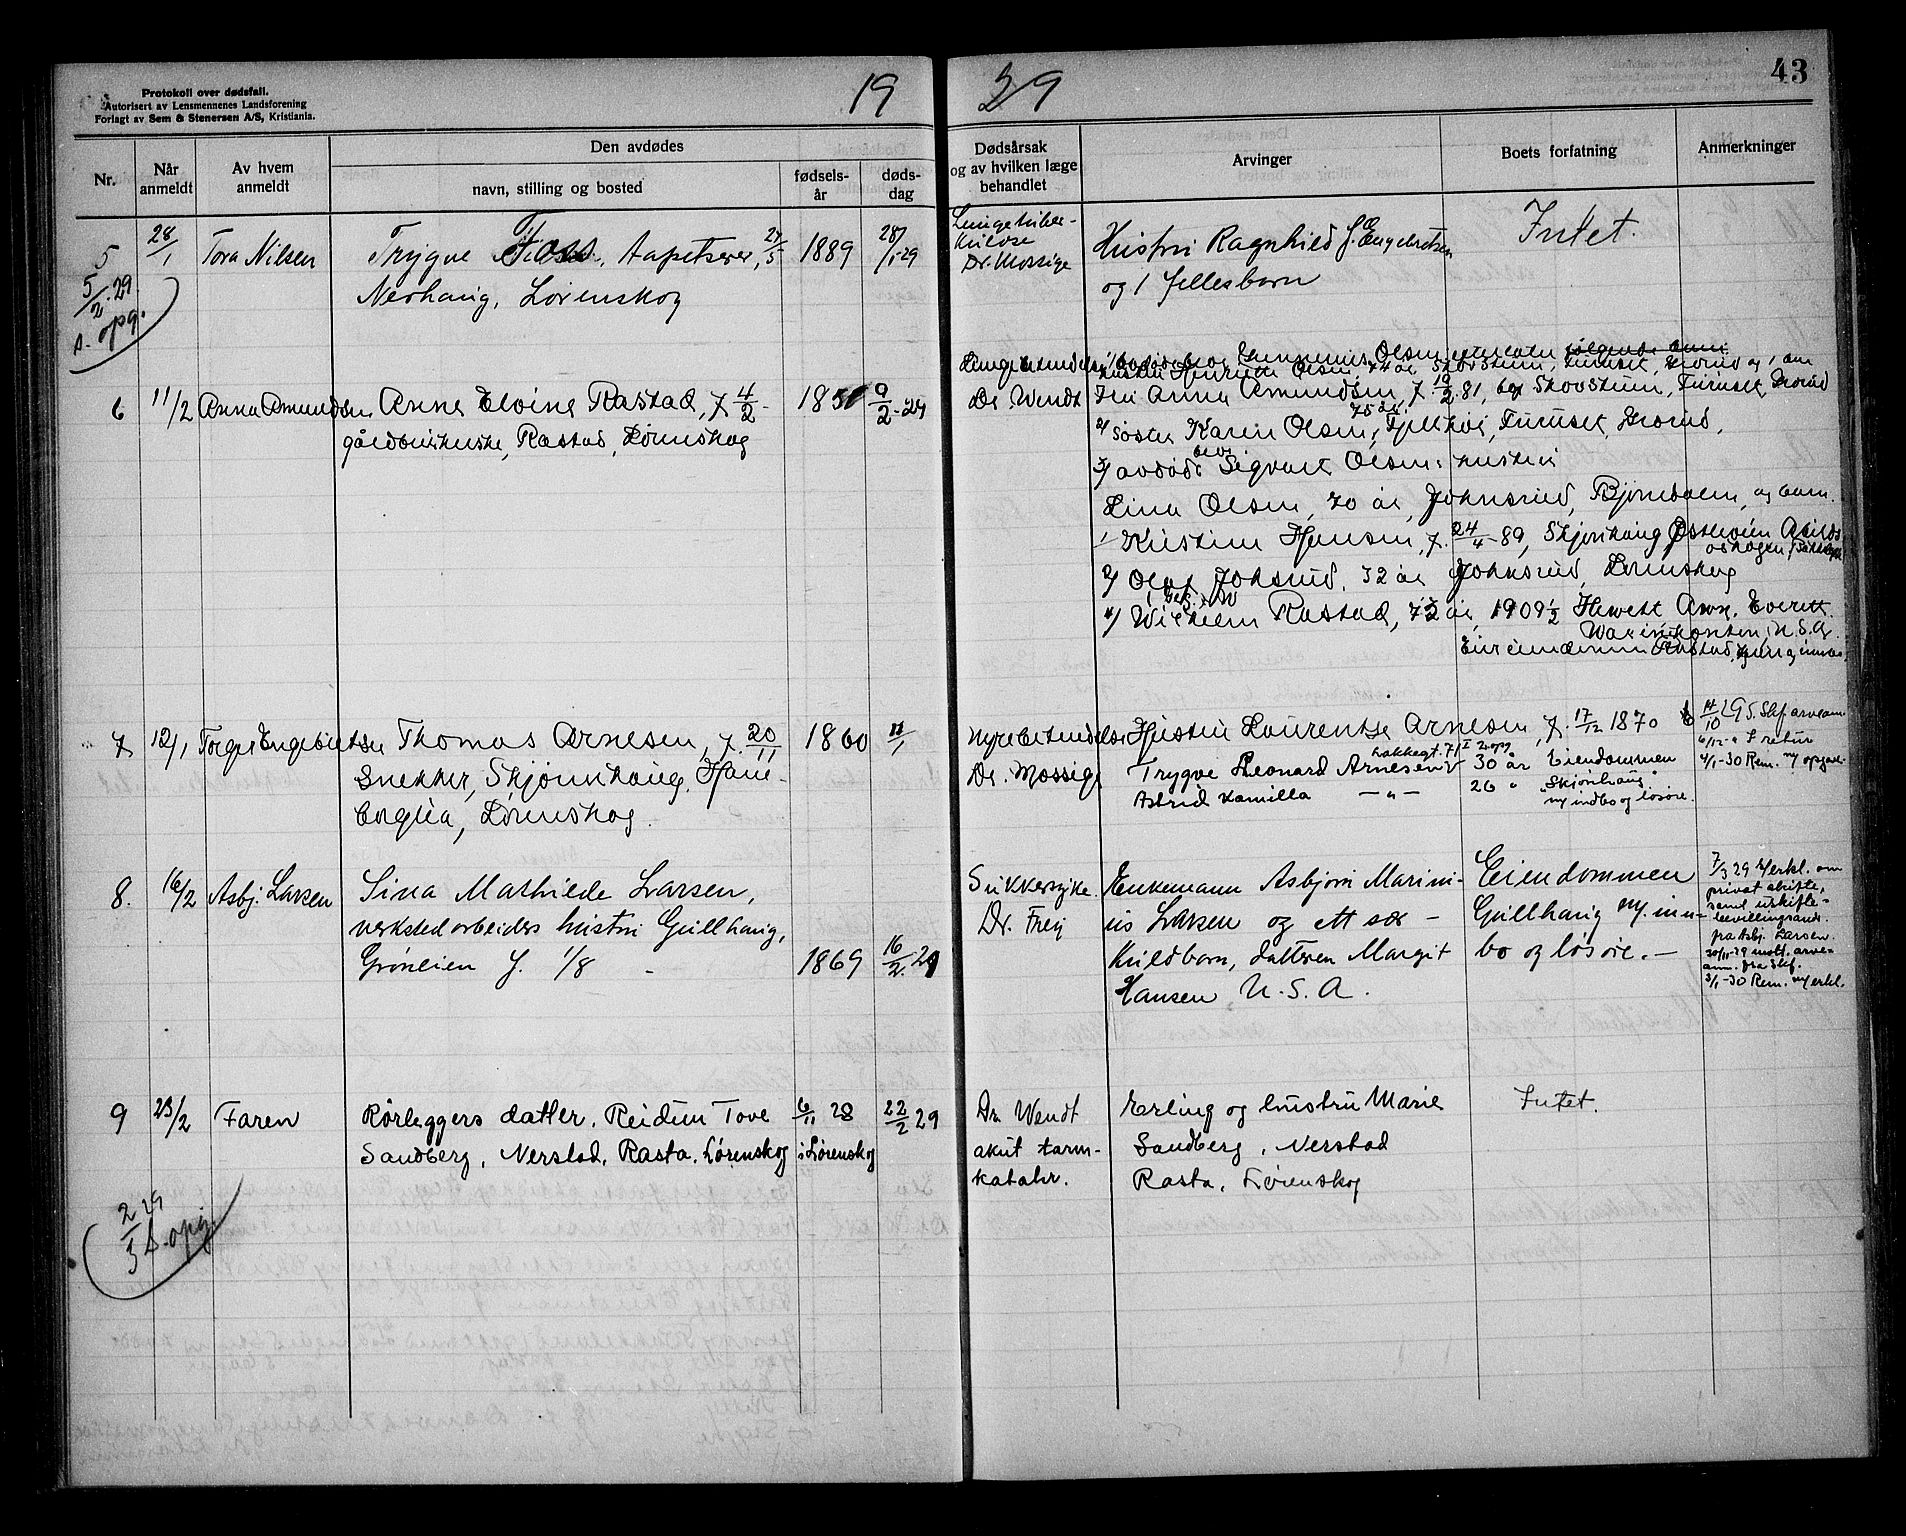 Protokoll over dødsfall.
Autorisert av Lensmennenes Landsforening
Forlagt av Sem & Stenersen A/S, Kristiania.
19 29
43
Nr.
Når anmeldt
Av hvem anmeldt
Den avdødes
navn, stilling og bosted
fødselsår
dødsdag
Dødsårsak
og av hvilken læge
behandlet
Arvinger
Boets forfatning
Anmerkninger
5
28/1
Tora Nilsen
Trygve Foss, Aapetserer, 27/5
Nerhaug, Lørenskog
1889
28/1-29
Lungetuber-
kulose
Dr. Mossige
Hustru Ragnhild f. Engebretsen
og 1 fellesbarn
Intet.
5/2-29.
D. opg.
6
11/2
Anna Amundsen
Anne Elvine Rastad, f. 4/2-
gårdbrukerske, Rastad, Lørenskog
1851
9/2-29
Lungebetendelse
Dr. Wendt
Olsen efterlater følgende barn
hustru Henriette Olsen, 74 år Skovstuen, Furuset, Grorud og 1 barn
Fru Anna Amundsen, f. 10/2.81, Skovstuen, Furuset, Grorud
2/ søster Karen Olsen, 75 år, Furuset, Grorud,
3/ avdøde bror Sigvart Olsens hustru
Lina Olsen, 70 år, Johnsrud, Bjørndalen, og barn.
1/ Kristine Hansen, f. 24/4-89, Skjønhaug
2/ Olaf Johsrud, 32 år Johnsrud, Lørenskog
4/ Wilhelm Rastad, 73 år, 1909½ Hewett Awe, Everett
Washington, U.S.A.
Eiendommen Rastad,
7
12/1
Torger Engebretsen
Thomas Arnesen, f. 20/11
Snekker, Skjønnhaug, Hane-
borglia, Lørenskog.
1860
11/1
Nyrebetendelse
Dr. Mossige
Hustru Laurentse Arnesen, f. 17/12 1870
Trygve Leonard Arnesen 30 år
Astrid Kamilla — " — 26 "
Eiendommen
"Skjønhaug"
m/ indbo og løsøre.
14/10 29 S. Skf. arveanm.
6/12 - " I retur
4/1-30 Rem. m/ opgave.
8.
16/2
Asbj. Larsen
Sina Mathilde Larsen,
verkstedarbeiders hustru Gullhaug,
Grønlien f. 1/8
1869
16/2.29
Sukkersyke.
Dr. Frey
Enkemann Asbjørn Marini-
us Larsen og ett sær-
kuldbarn, datteren Margit
Hansen U.S.A.
Eiendommen
Gullhaug m/. inn-
bo og løsøre.—
7/3 29 m/ erkl. om
privat skifte,
samt uskifte-
bevillingsands.
fra Asbj. Larsen.
30/11-29 mott. arve-
anm. fra Skf.
3/1-30 Rem. m/ erkl.
9
23/2
Faren
Rørleggers datter, Reidun Tove
Sandberg, Nerstad, Rasta, Lørenskog
6/11 28
i Lørenskog
22/2 29
Dr. Wendt
akut tarm-
katahr.
Erling og hustru Marie
Sandberg, Nerstad
Rasta, Lørenskog
Intet.
2/3 29
D. opg.